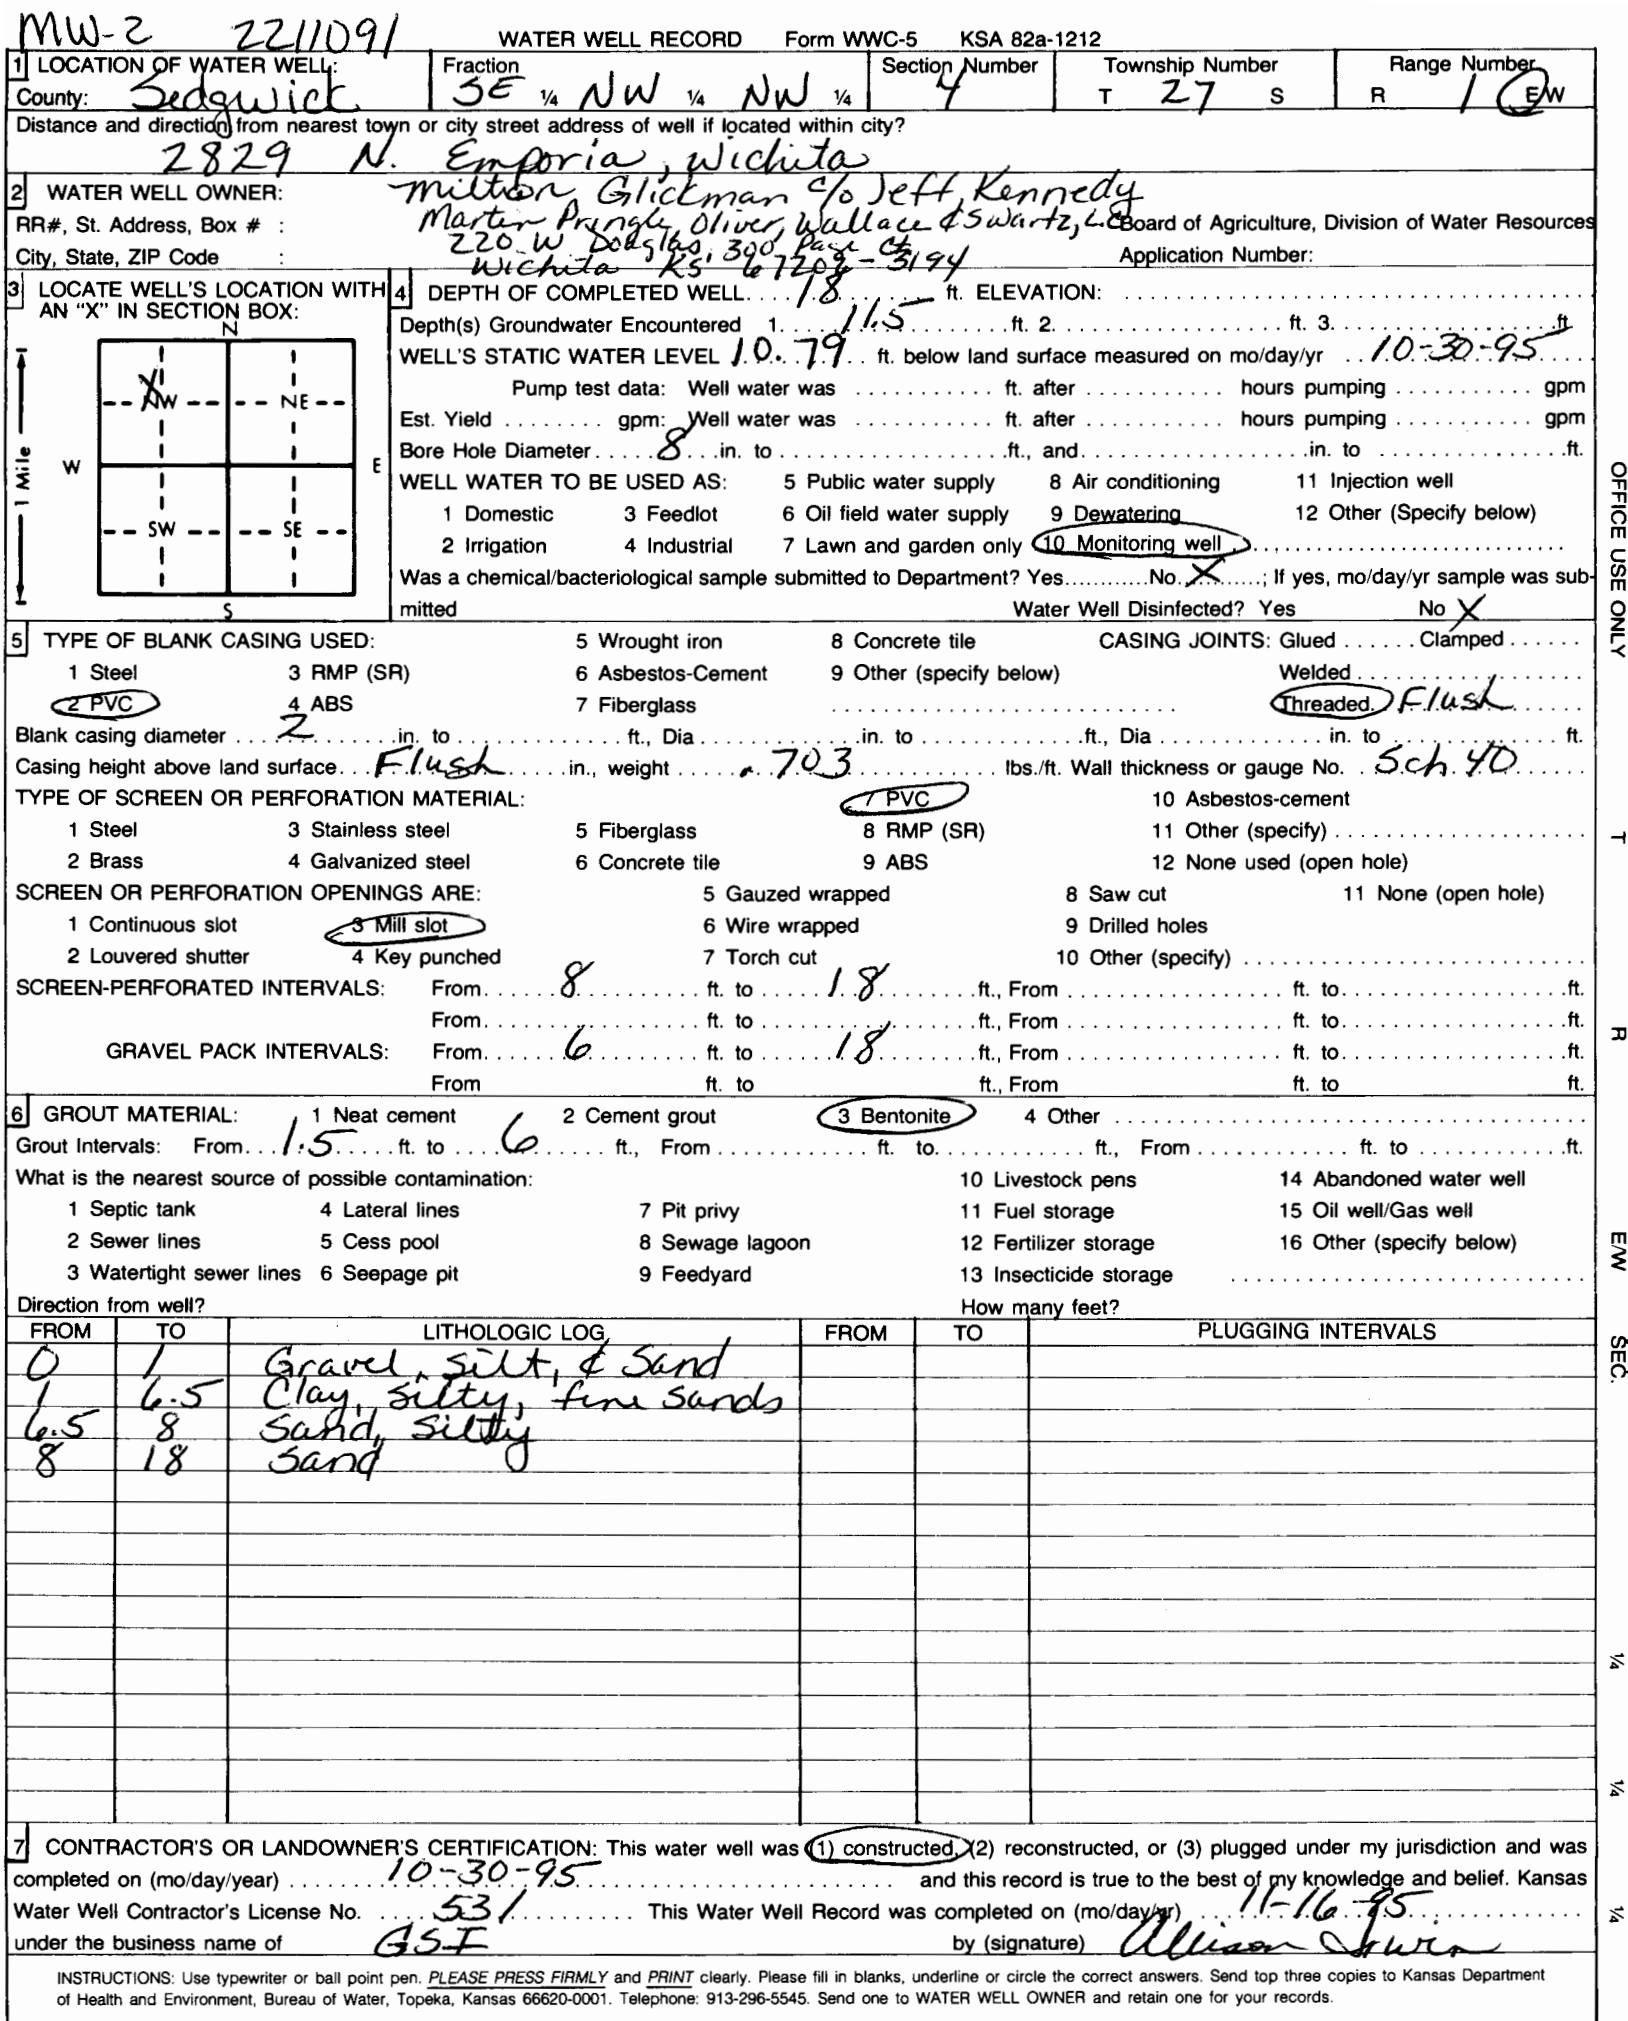 MW-2 2211091
WATER WELL RECORD Form WWC-5 KSA 82a-1212
1 LOCATION OF WATER WELL: Fraction Section Number Township Number Range Number
County: Sedgwick SE ¼ NW ¼ NW ¼ 4 T 27 S R 1 E/W
Distance and direction from nearest town or city street address of well if located within city?
2829 N. Emporia, Wichita
2 WATER WELL OWNER: Milton Glickman c/o Jeff Kennedy
RR#, St. Address, Box # : Martin Pringle Oliver, Wallace & Swartz, L.C. Board of Agriculture, Division of Water Resources
220 W Douglas, 300 Page Ct.
City, State, ZIP Code : Wichita Ks. 67202-3194 Application Number:
3 LOCATE WELL'S LOCATION WITH AN "X" IN SECTION BOX:
N
X
NW NE
W E
SW SE
S
1 Mile
4 DEPTH OF COMPLETED WELL.... 18 ........ ft. ELEVATION: ........
Depth(s) Groundwater Encountered 1. 11.5 ft. 2. ft. 3. ft
WELL'S STATIC WATER LEVEL 10.79 ft. below land surface measured on mo/day/yr 10-30-95
Pump test data: Well water was ........ ft. after ........ hours pumping ........ gpm
Est. Yield ........ gpm: Well water was ........ ft. after ........ hours pumping ........ gpm
Bore Hole Diameter 8 in. to ........ ft., and ........ in. to ........ ft.
WELL WATER TO BE USED AS: 5 Public water supply 8 Air conditioning 11 Injection well
1 Domestic 3 Feedlot 6 Oil field water supply 9 Dewatering 12 Other (Specify below)
2 Irrigation 4 Industrial 7 Lawn and garden only 10 Monitoring well ........
Was a chemical/bacteriological sample submitted to Department? Yes........No X ; If yes, mo/day/yr sample was sub-
mitted Water Well Disinfected? Yes No X
5 TYPE OF BLANK CASING USED: 5 Wrought iron 8 Concrete tile CASING JOINTS: Glued ...... Clamped ......
1 Steel 3 RMP (SR) 6 Asbestos-Cement 9 Other (specify below) Welded ........
2 PVC 4 ABS 7 Fiberglass ........ Threaded. Flush
Blank casing diameter 2 in. to ........ ft., Dia ........ in. to ........ ft., Dia ........ in. to ........ ft.
Casing height above land surface Flush in., weight .703 lbs./ft. Wall thickness or gauge No. Sch. 40
TYPE OF SCREEN OR PERFORATION MATERIAL: 7 PVC 10 Asbestos-cement
1 Steel 3 Stainless steel 5 Fiberglass 8 RMP (SR) 11 Other (specify) ........
2 Brass 4 Galvanized steel 6 Concrete tile 9 ABS 12 None used (open hole)
SCREEN OR PERFORATION OPENINGS ARE: 5 Gauzed wrapped 8 Saw cut 11 None (open hole)
1 Continuous slot 3 Mill slot 6 Wire wrapped 9 Drilled holes
2 Louvered shutter 4 Key punched 7 Torch cut 10 Other (specify) ........
SCREEN-PERFORATED INTERVALS: From 8 ft. to 18 ft., From ........ ft. to ........ ft.
From ........ ft. to ........ ft., From ........ ft. to ........ ft.
GRAVEL PACK INTERVALS: From 6 ft. to 18 ft., From ........ ft. to ........ ft.
From ft. to ft., From ft. to ft.
6 GROUT MATERIAL: 1 Neat cement 2 Cement grout 3 Bentonite 4 Other ........
Grout Intervals: From 1.5 ft. to 6 ft., From ........ ft. to ........ ft., From ........ ft. to ........ ft.
What is the nearest source of possible contamination: 10 Livestock pens 14 Abandoned water well
1 Septic tank 4 Lateral lines 7 Pit privy 11 Fuel storage 15 Oil well/Gas well
2 Sewer lines 5 Cess pool 8 Sewage lagoon 12 Fertilizer storage 16 Other (specify below)
3 Watertight sewer lines 6 Seepage pit 9 Feedyard 13 Insecticide storage ........
Direction from well? How many feet?
FROM TO LITHOLOGIC LOG FROM TO PLUGGING INTERVALS
0 1 Gravel, silt, & Sand
1 6.5 Clay, silty, fine sands
6.5 8 Sand, silty
8 18 Sand
7 CONTRACTOR'S OR LANDOWNER'S CERTIFICATION: This water well was (1) constructed, (2) reconstructed, or (3) plugged under my jurisdiction and was
completed on (mo/day/year) 10-30-95 and this record is true to the best of my knowledge and belief. Kansas
Water Well Contractor's License No. 531 This Water Well Record was completed on (mo/day/yr) 11-16-95
under the business name of GSI by (signature) Allison Irwin
INSTRUCTIONS: Use typewriter or ball point pen. PLEASE PRESS FIRMLY and PRINT clearly. Please fill in blanks, underline or circle the correct answers. Send top three copies to Kansas Department
of Health and Environment, Bureau of Water, Topeka, Kansas 66620-0001. Telephone: 913-296-5545. Send one to WATER WELL OWNER and retain one for your records.
OFFICE USE ONLY
T
R
E/W
SEC.
¼
¼
¼